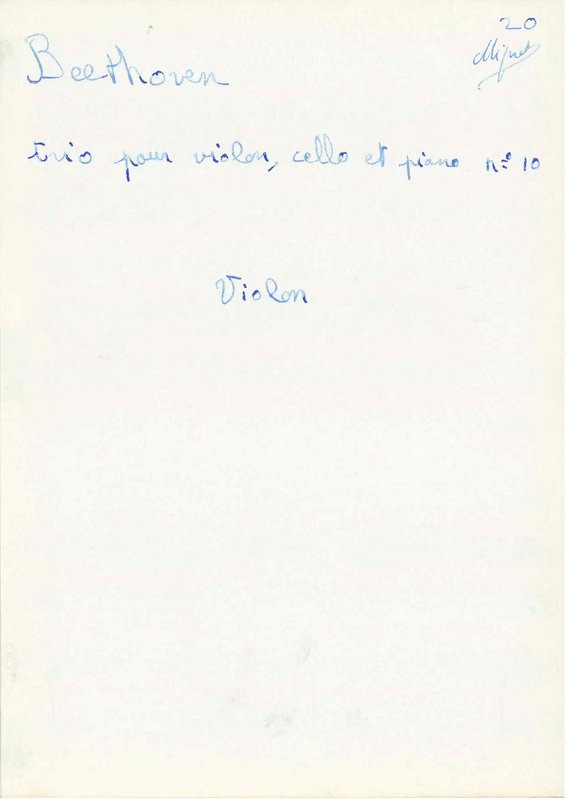 20
Beethoven
trio pour violon, cello et piano n° 10
Violon